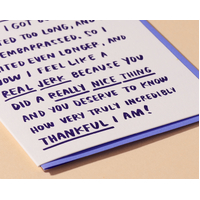 I GOT B
TED TOO LONG, AND
EMBARRASSED. SO I
ITED EVEN LONGER, AND
OW I FEEL LIKE A
REAL JERK, BECAUSE YOU
DID A REALLY NICE THING
AND YOU DESERVE TO KNOW
HOW VERY TRULY INCREDIBLY
THANKFUL I AM!